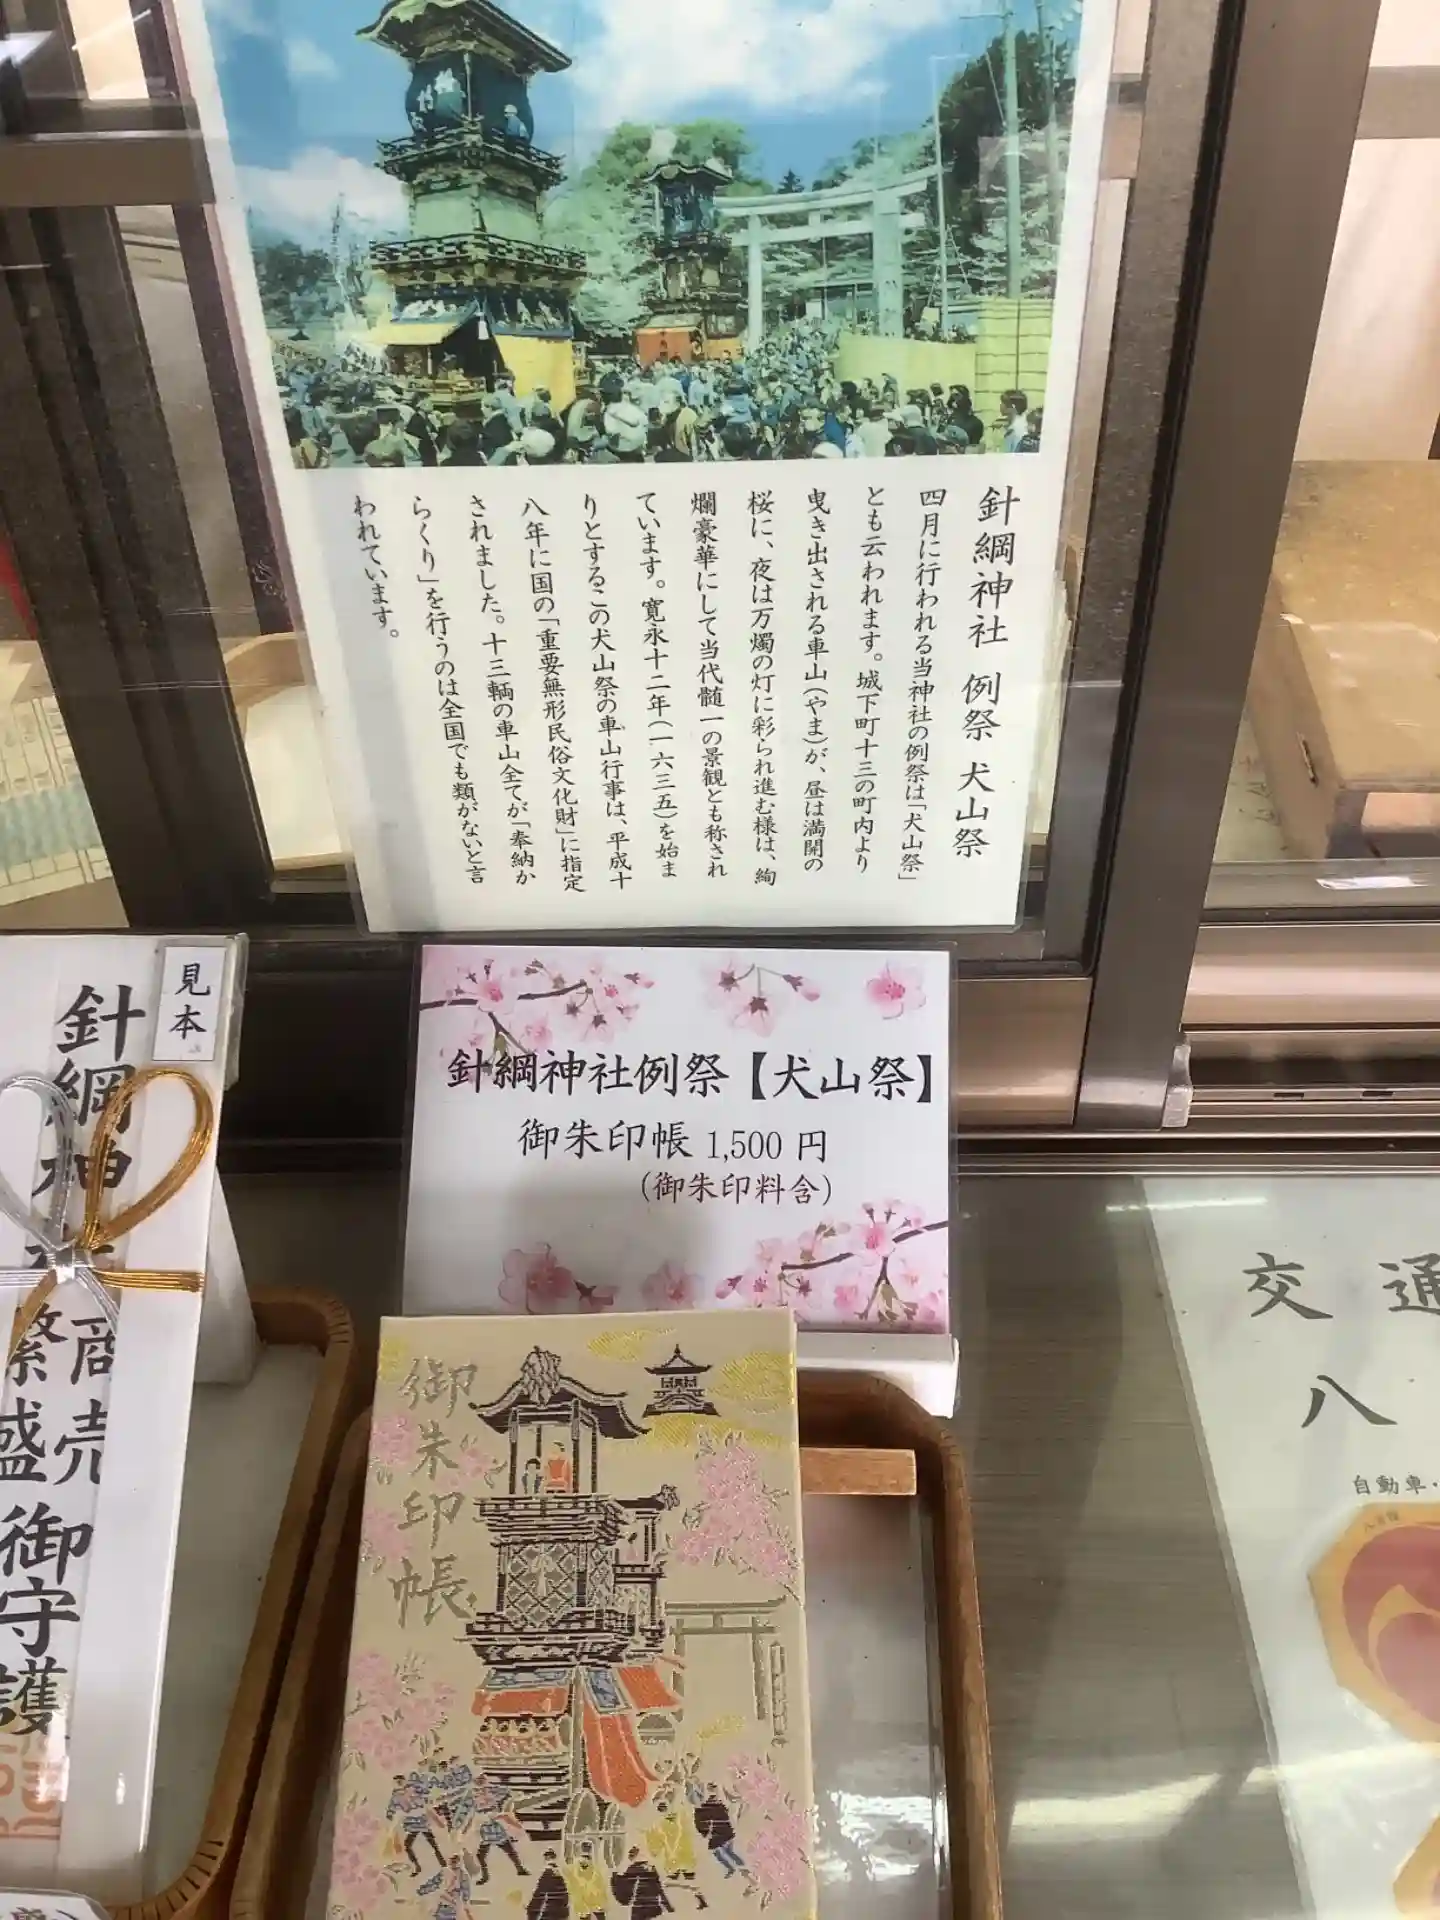 針綱神社 例祭 犬山祭
四月に行われる当神社の例祭は「犬山祭」
とも云われます。城下町十三の町内より
曳き出される車山(やま)が、昼は満開の
桜に、夜は万燭の灯に彩られ進む様は、絢
爛豪華にして当代髄一の景観とも称され
ています。寛永十二年(一六三五)を始ま
りとするこの犬山祭の車山行事は、平成十
八年に国の「重要無形民俗文化財」に指定
されました。十三輌の車山全てが「奉納か
らくり」を行うのは全国でも類がないと言
われています。
見本
針綱神社
商売
繁盛
御守護
針綱神社例祭【犬山祭】
御朱印帳 1,500 円
(御朱印料含)
御朱印帳
交通
八
自動車・